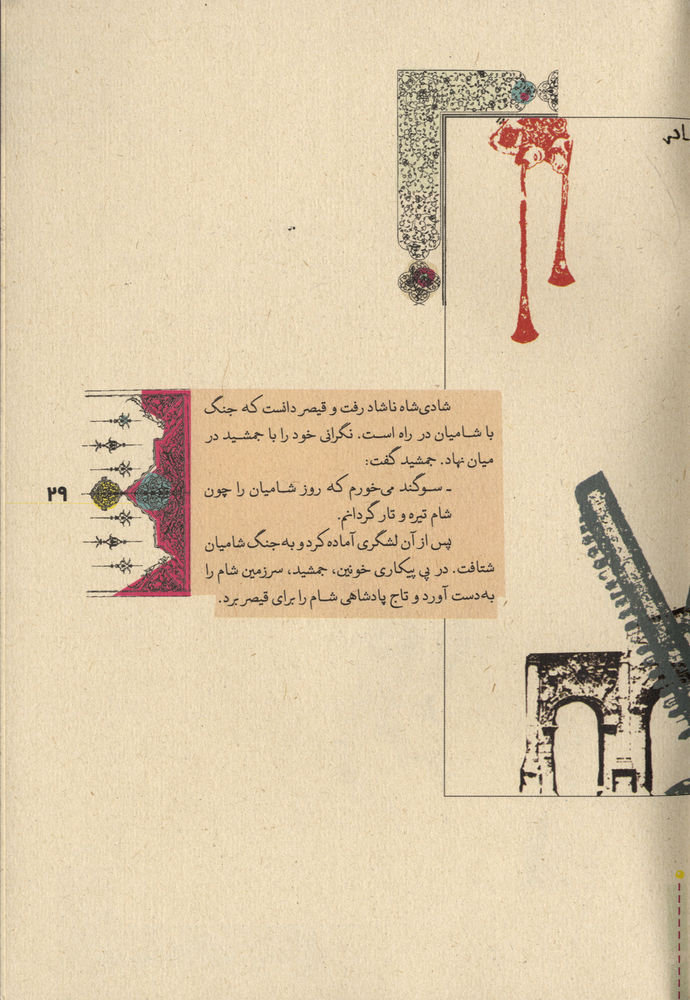 شادی‌شاه ناشاد رفت و قیصر دانست که جنگ
با شامیان در راه است. نگرانی خود را با جمشید در
میان نهاد. جمشید گفت:
ـ سوگند می‌خورم که روز شامیان را چون
شام تیره و تار گردانم.
پس از آن لشگری آماده کرد و به جنگ شامیان
شتافت. در پی پیکاری خونین، جمشید، سرزمین شام را
به‌دست آورد و تاج پادشاهی شام را برای قیصر برد.
۲۹